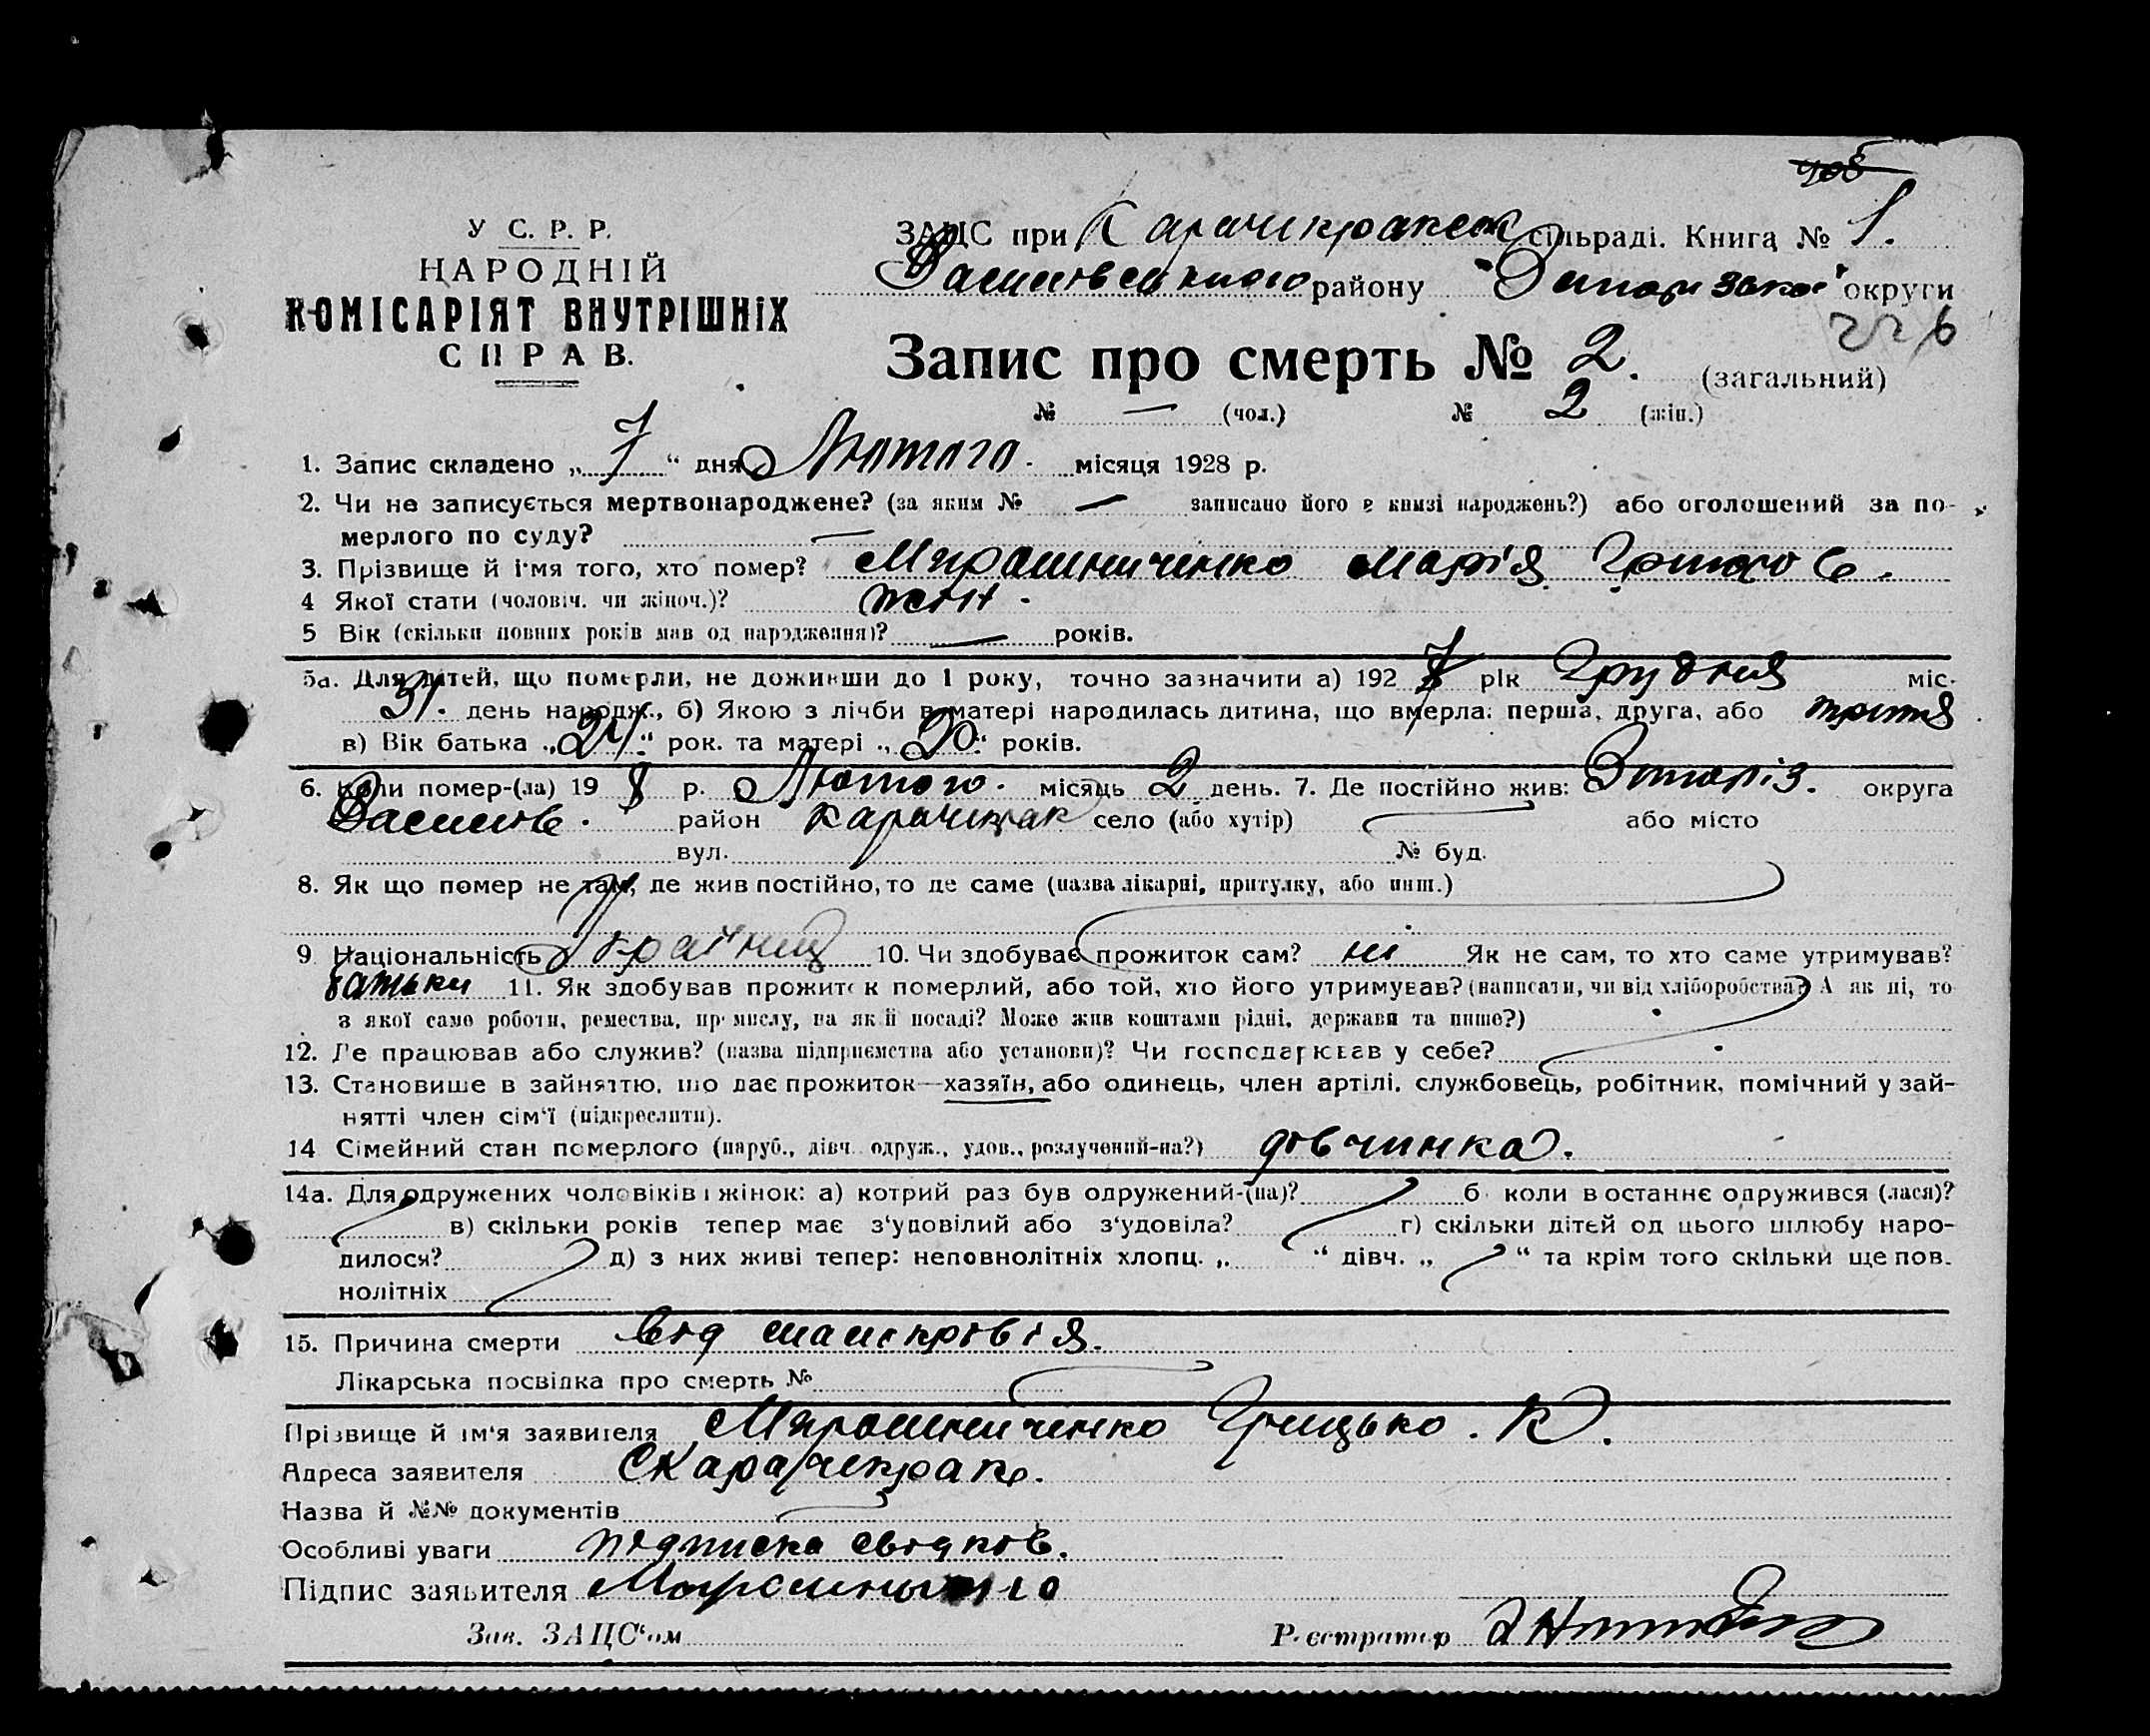 У С. Р. Р.
НАРОДНІЙ
КОМІСАРІЯТ ВНУТРІШНІХ
СПРАВ.
ЗАЦС при Карачикракск сільраді. Книга № 1.
Василівського району Запорізької округи
226
Запис про смерть № 2. (загальний)
№ — (чол.) № 2 (жін.)
1. Запис складено „ 7 “ дня Лютого місяця 1928 р.
2. Чи не записується мертвонароджене? (за яким № — записано його в книзі народжень?) або оголошений за по-
мерлого по суду? —
3. Прізвище й ім'я того, хто помер? Мирошниченко Марія Григоров.
4 Якої стати (чоловіч. чи жіноч.)? жін.
5 Вік (скільки повних років мав од народження)? — років.
5а. Для дітей, що померли, не доживши до 1 року, точно зазначити а) 1927 рік Грудня міс.
31. день народж., б) Якою з лічби в матері народилась дитина, що вмерла: перша, друга, або третя.
в) Вік батька „24“ рок. та матері „20“ років.
6. Коли помер-(ла) 19 8 р. Лютого. місяць 2 день. 7. Де постійно жив: Запоріз. округа
Василів. район Карачикрак село (або хутір) або місто
вул. № буд.
8. Як що помер не там, де жив постійно, то де саме (назва лікарні, притулку, або инш.)
9 Національність Україниц 10. Чи здобував прожиток сам? ні Як не сам, то хто саме утримував?
батьки 11. Як здобував прожиток померлий, або той, хто його утримував? (написати, чи від хліборобства? А як ні, то
з якої саме роботи, ремества, промислу, на якій посаді? Може жив коштами рідні, держави та инше?)
12. Де працював або служив? (назва підприємства або установи)? Чи господарював у себе?
13. Становище в зайняттю, що дає прожиток—хазяїн, або одинець, член артілі, службовець, робітник, помічний у зай-
нятті член сім‘ї (підкреслити).
14 Сімейний стан померлого (паруб., дівч. одруж., удов., розлучений-на?) дівчинка.
14а. Для одружених чоловіків і жінок: а) котрий раз був одружений-(на)? б коли в останнє одружився (лася)?
в) скільки років тепер має з‘удовілий або з‘удовіла? г) скільки дітей од цього шлюбу наро-
дилося? д) з них живі тепер: неповнолітніх хлопц. „ “ дівч. „ “ та крім того скільки ще пов.
нолітніх
15. Причина смерти від малокровія.
Лікарська посвідка про смерть №
Прізвище й ім‘я заявителя Мирошниченко Грицько. К.
Адреса заявителя с Карачикрак.
Назва й №№ документів
Особливі уваги підписка свідків.
Підпис заявителя
Зав. ЗАЦС‘ом Реєстратор